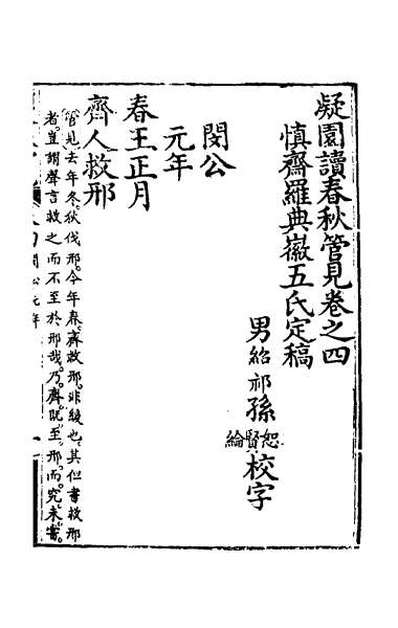 凝園讀春秋管見卷之四
慎齋羅典徽五氏定稿
男紹祁孫
恕賢綸
校字
閔公
元年
春王正月
齊人救邢
管見去年冬狄伐邢今年春齊救邢非緩也其但書救邢
者豈謂聲言救之而不至於邢哉乃齊既至邢而究未嘗
閔公元年
一